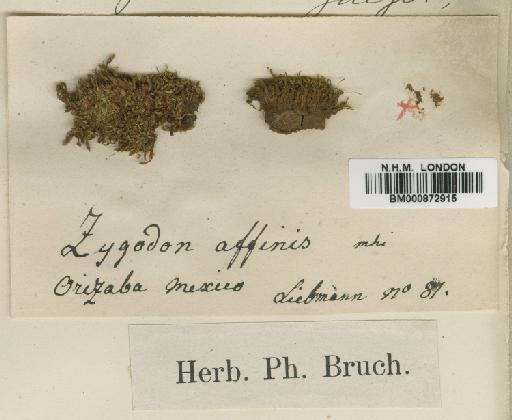 N.H.M. LONDON
BM000872915
Zygodon affinis mhi
Orizaba Mexico Liebmann no 87.
Herb. Ph. Bruch.